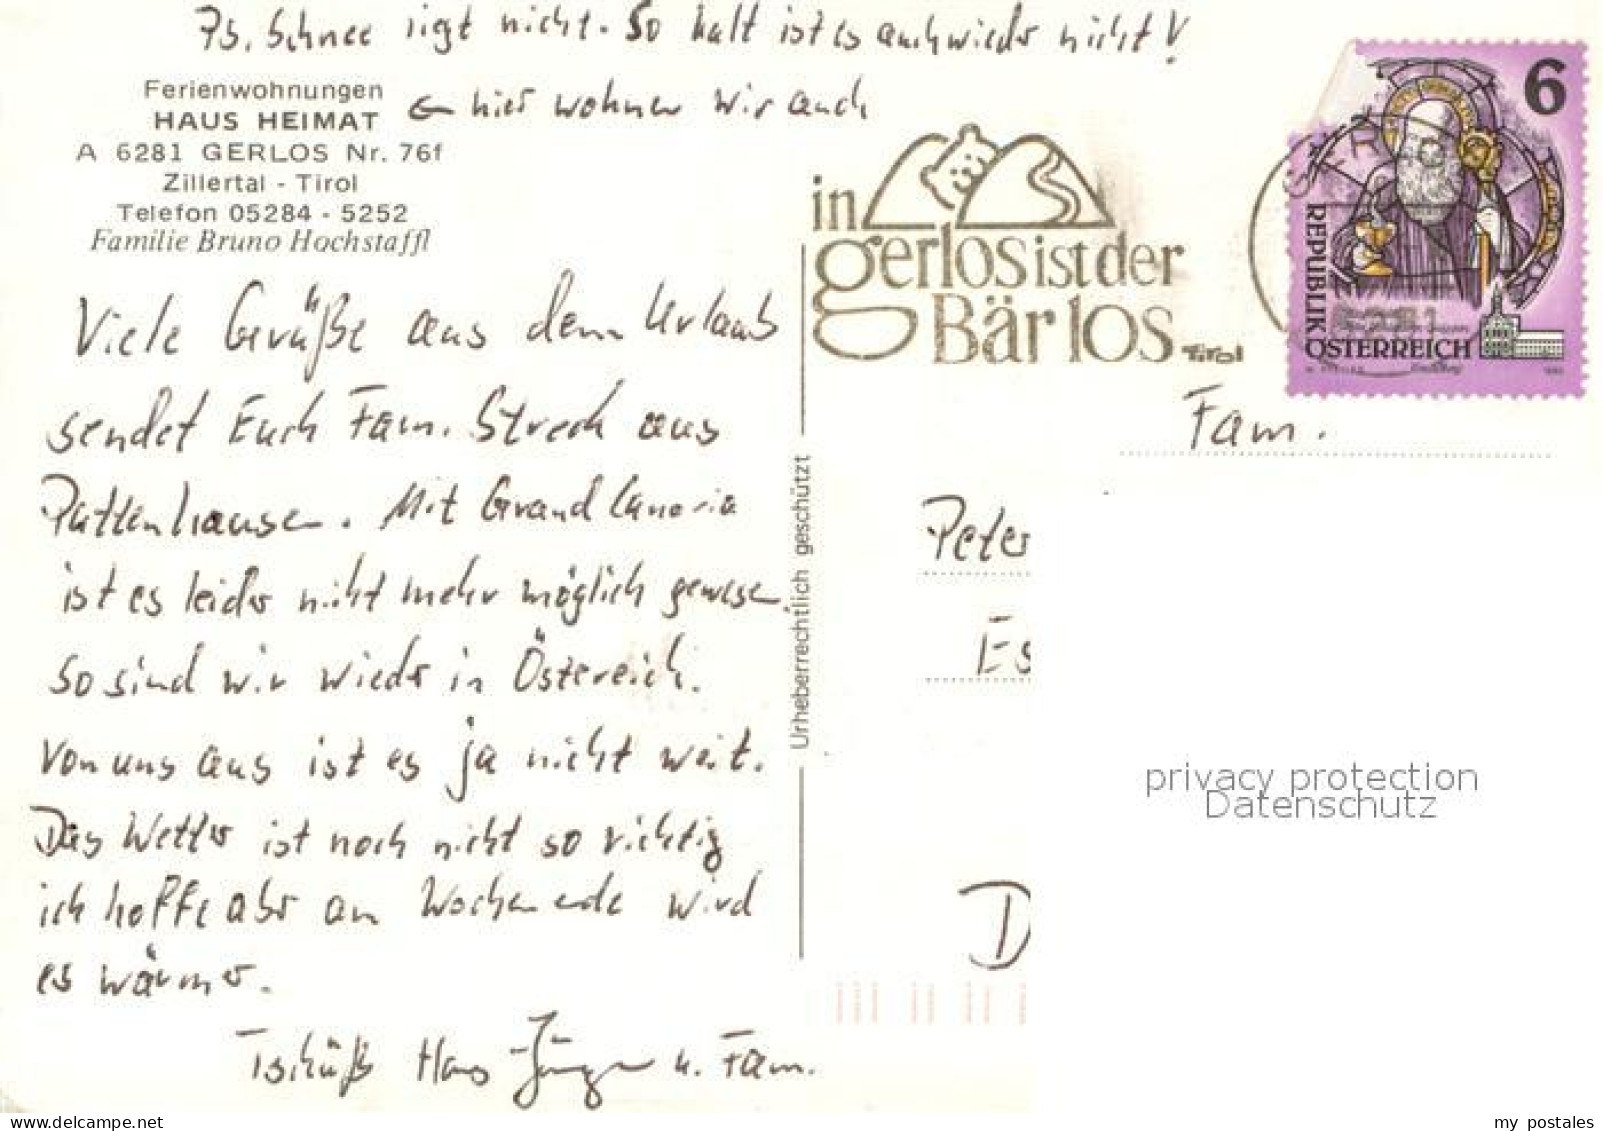 Ps. Schnee liegt nicht. So kalt ist es auch wieder nicht!
Ferienwohnungen
HAUS HEIMAT
← hier wohnen wir auch
A 6281 GERLOS Nr. 76f
Zillertal - Tirol
Telefon 05284 - 5252
Familie Bruno Hochstaffl
in
gerlos ist der
Bär los
Tirol
6
REPUBLIK
ÖSTERREICH
Viele Grüße aus dem Urlaub
sendet Euch Fam. Streck aus
Pattenhausen. Mit Grand Canaria
ist es leider nicht mehr möglich gewesen.
So sind wir wieder in Östereich.
Von uns aus ist es ja nicht weit.
Das Wetter ist noch nicht so richtig
ich hoffe aber am Wochenende wird
es wärmer.
Tschüß Hans Jürgen u. Fam.
Urheberrechtlich geschützt
Fam.
Peter
Es
D
privacy protection
Datenschutz
my postales